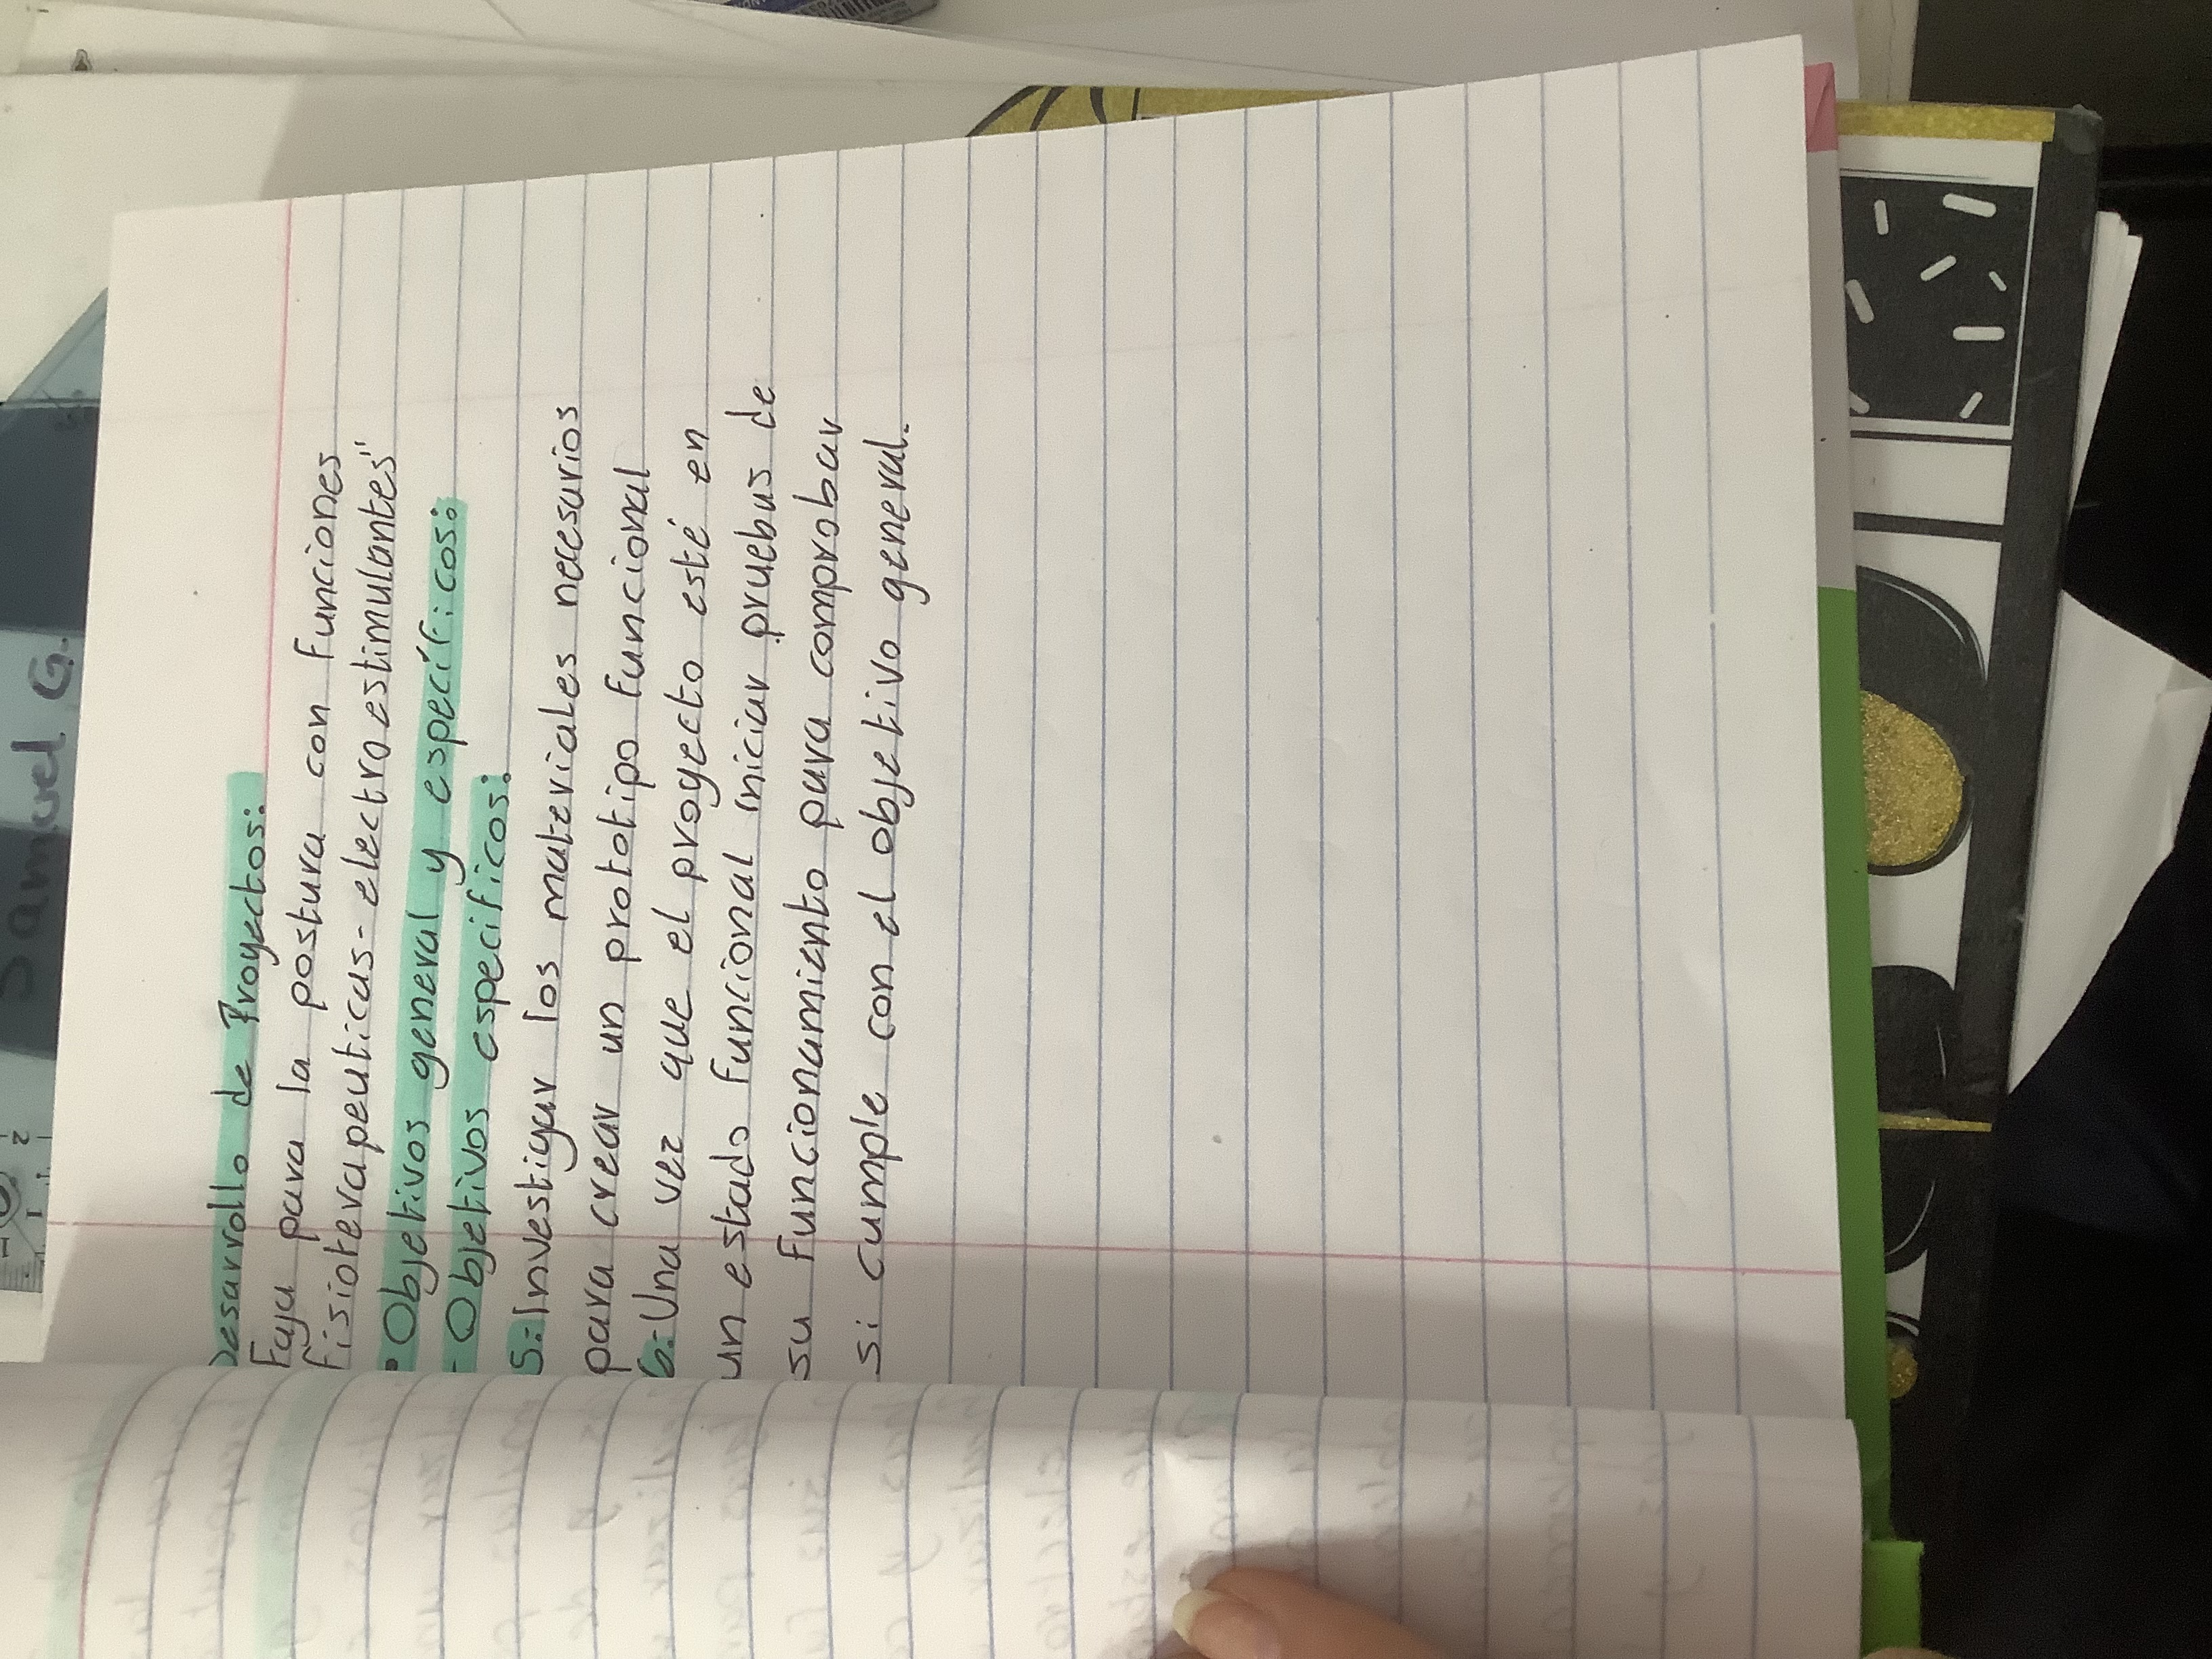 Desarrollo de Proyectos:
Faja para la postura con funciones
fisioterapeuticas-electroestimulantes"
• Objetivos general y específicos:
- Objetivos especificos:
5.-Investigar los materiales necesarios
para crear un prototipo funcional
6.-Una vez que el proyecto esté en
un estado funcional iniciar pruebas de
su funcionamiento para comprobar
si cumple con el objetivo general.
Samuel G.
1 2